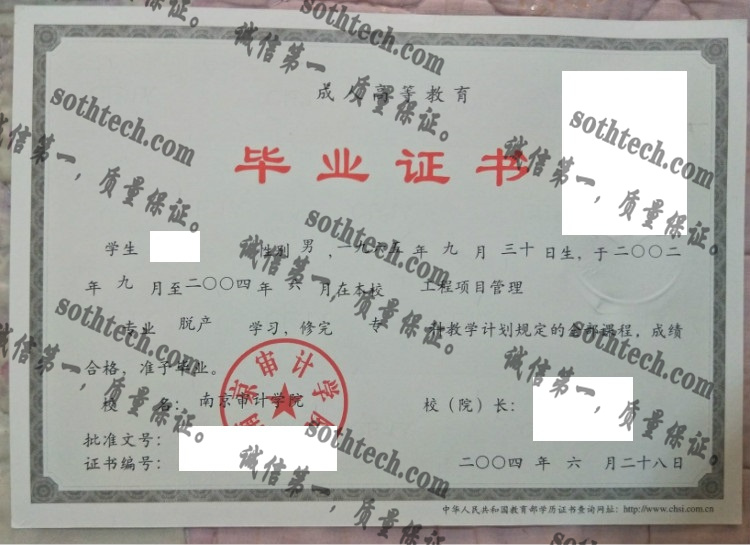 成人高等教育
毕业证书
学生 性别 男，一九六五年九月三十日生，于二〇〇二
年九月至二〇〇四年六月在本校 工程项目管理
专业 脱产 学习，修完 专 科教学计划规定的全部课程，成绩
合格，准予毕业。
校 名：南京审计学院 校（院）长：
批准文号：
证书编号： 二〇〇四年六月二十八日
中华人民共和国教育部学历证书查询网址：http://www.chsi.com.cn
南京审计学院
sothtech.com
诚信第一，质量保证。
sothtech.com
诚信第一，质量保证。
sothtech.com
诚信第一，质量保证。
sothtech.com
诚信第一，质量保证。
sothtech.com
诚信第一，质量保证。
sothtech.com
诚信第一，质量保证。
sothtech.com
诚信第一，质量保证。
sothtech.com
诚信第一，质量保证。